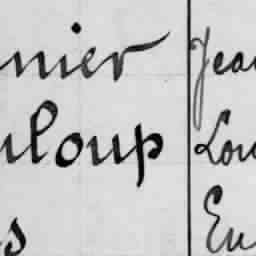 nier Jean
uloup Lou
s Eu